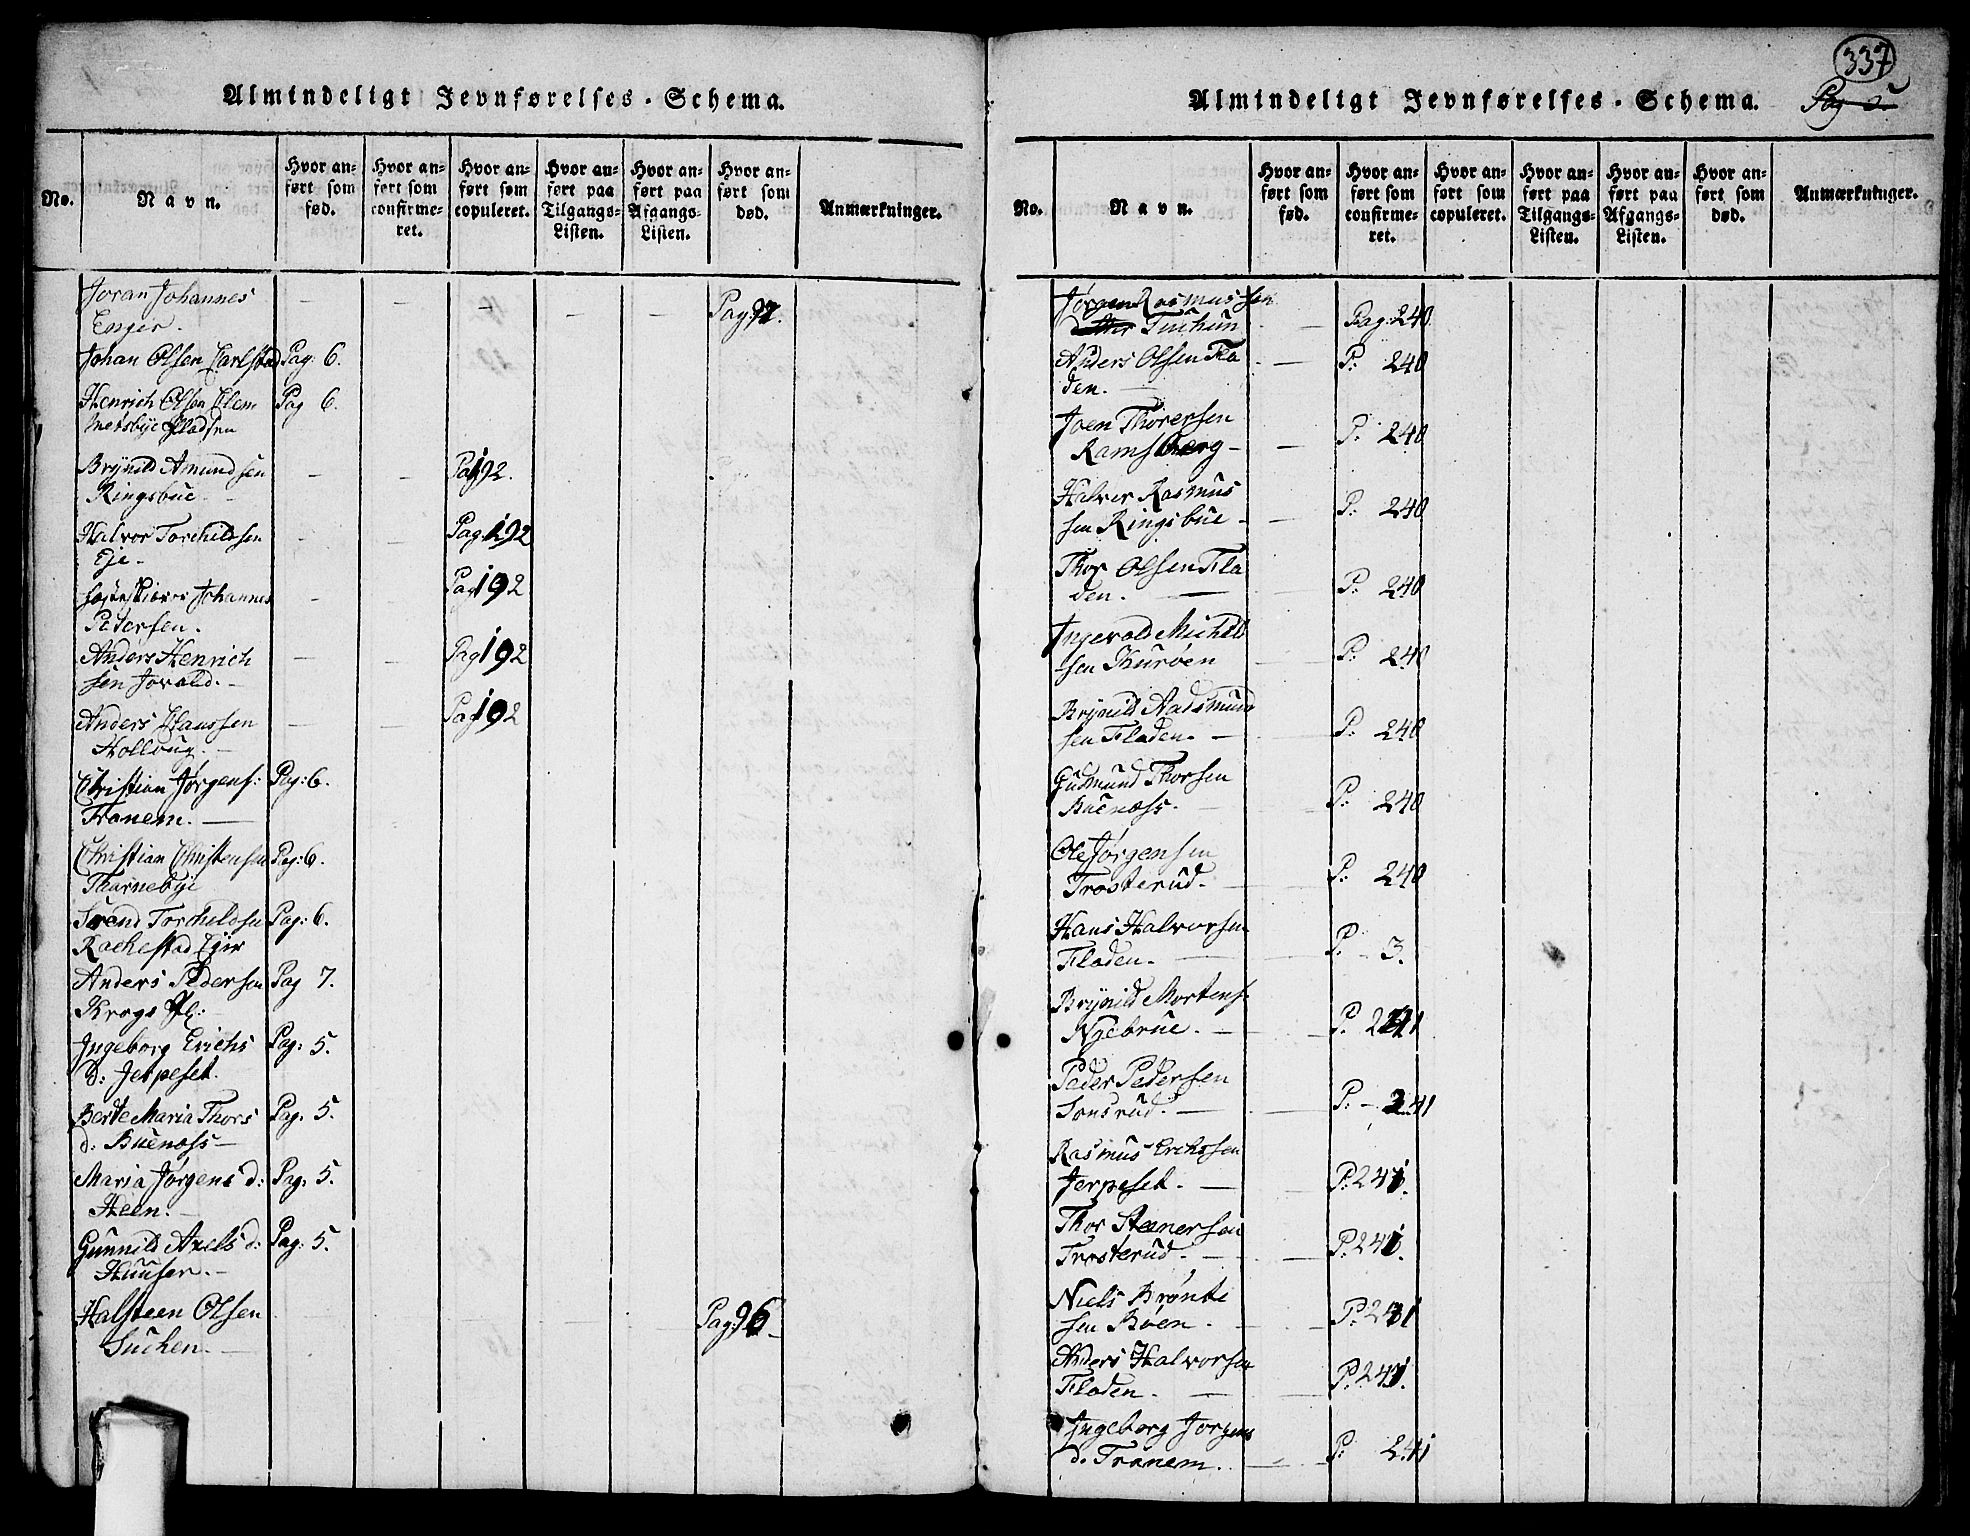 Almindeligt Jevnførelses-Schema.
No.
Navn.
Hvor an-
ført som
fød.
Hvor an-
ført som
confirme-
ret.
Hvor an-
ført som
copuleret.
Hvor an-
ført paa
Tilgangs-
Listen.
Hvor an-
ført paa
Afgangs-
Listen.
Hvor an-
ført som
død.
Anmærkninger.
Joran Johannes
Enger. Pag: 97.
Johan Olsen Carlstad Pag: 6.
Henrich Olsen Clem Pag 6.
metsbye Pladsen
Brynild Amundsen Pag 192.
Ringsbue.
Halvor Torchildsen Pag: 192
Eje.
Johannes Pag 192
Pedersen.
Anders Henrich Pag 192
sen Jovald.
Anders Hanssen Pag 192
Hollbug.
Christian Jørgens: Pag: 6.
Tranem.
Christian Christensen Pag: 6.
Tharnebye
Svend Torchildsen Pag: 6.
Rachestad Ejer
Anders Pedersen Pag 7.
Krogs Pl:
Ingeborg Erichs Pag: 5.
d: Jerpeset.
Berte Maria Thors Pag. 5.
d: Buenæss
Maria Jørgens d: Pag. 5.
Heen.
Gunnild Axels d: Pag: 5.
Huuser.
Halsteen Olsen Pag: 96
Suchen.
337
Pag 2.
Almindeligt Jevnførelses-Schema.
No.
Navn.
Hvor an-
ført som
fød.
Hvor an-
ført som
confirme-
ret.
Hvor an-
ført som
copuleret.
Hvor an-
ført paa
Tilgangs-
Listen.
Hvor an-
ført paa
Afgangs-
Listen.
Hvor an-
ført som
død.
Anmærkninger.
Jørgen Rasmussen
Tuchun Pag: 240
Anders Olsen Fla P: 240
den.
Joen Thorersen
Ramsberg P: 240
Halver Rasmus
sen Ringsbue P: 240
Thor Olsen Fla
den. P: 240
Ingevald Michel
sen Kurøen P: 240
Brynild Aadsmund
sen Fladen. P: 240
Gudmund Thorsen
Buenæss. P: 240
Ole Jørgensen
Trosterud. P: 240
Hans Halvorsen
Fladen. P. 3.
Brynild Mortens:
Nyebrue. P. 241
Peder Pedersen
Sonsrud. P. 241
Rasmus Erichssen
Jerpeset. P: 241.
Thor Steenersen
Trosterud. P. 241.
Niels Brønte
sen Bøen. P: 241
Anders Halvorsen
Fladen. P: 241.
Ingeborg Jørgens
d. Tranem. P: 241